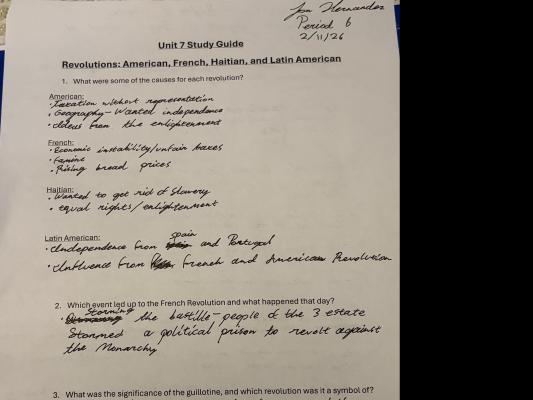 Jon Hernandez
Period 6
2/11/26
Unit 7 Study Guide
Revolutions: American, French, Haitian, and Latin American
1. What were some of the causes for each revolution?
American:
• Taxation without representation
• Geography - Wanted independence
• Ideas from the enlightenment
French:
• Economic instability/unfair taxes
• Famine
• Rising bread prices
Haitian:
• Wanted to get rid of Slavery
• equal rights/enlightenment
Latin American:
• Independence from Spain and Portugal
• Influence from French and American Revolution
2. Which event led up to the French Revolution and what happened that day?
• Storming the bastille - people of the 3 estate
Stormed a political prison to revolt against
the Monarchy
3. What was the significance of the guillotine, and which revolution was it a symbol of?